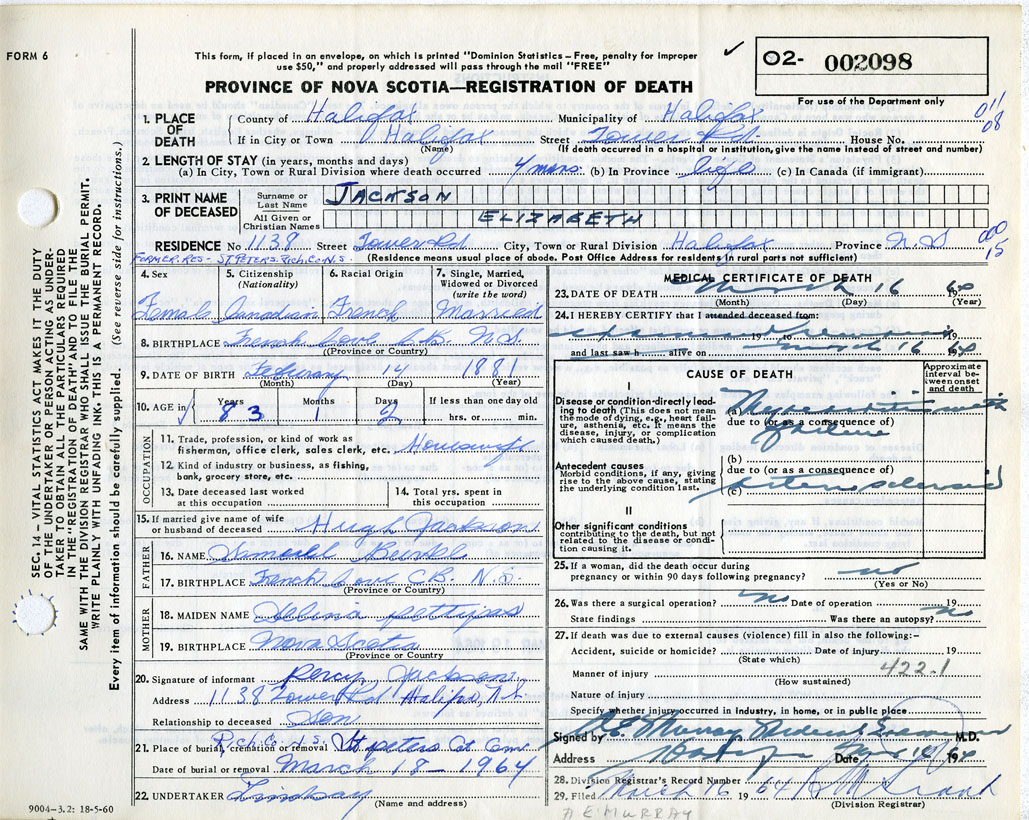 FORM 6
This form, if placed in an envelope, on which is printed "Dominion Statistics – Free, penalty for improper
use $50," and properly addressed will pass through the mail "FREE"
✓
O2- 002098
For use of the Department only
PROVINCE OF NOVA SCOTIA—REGISTRATION OF DEATH
1. PLACE OF DEATH
County of Halifax Municipality of Halifax 011
If in City or Town Halifax Street Tower Rd. House No. 08
(Name) (If death occurred in a hospital or institution, give the name instead of street and number)
2. LENGTH OF STAY (in years, months and days)
(a) In City, Town or Rural Division where death occurred 4 mons. (b) In Province life (c) In Canada (if immigrant)
3. PRINT NAME OF DECEASED
Surname or Last Name JACKSON
All Given or Christian Names ELIZABETH
RESIDENCE No. 1138 Street Tower Rd City, Town or Rural Division Halifax Province N.S 000
15
FORMER RES- ST PETERS, Rich. Co. N.S. (Residence means usual place of abode. Post Office Address for residents in rural parts not sufficient)
4. Sex
Female
5. Citizenship
(Nationality)
Canadian
6. Racial Origin
French
7. Single, Married,
Widowed or Divorced
(write the word)
Married
8. BIRTHPLACE French Cove C.B. N.S.
(Province or Country)
9. DATE OF BIRTH February 14 1881
(Month) (Day) (Year)
10. AGE in Years 83 Months 1 Days 2 If less than one day old
hrs. or min.
OCCUPATION
11. Trade, profession, or kind of work as
fisherman, office clerk, sales clerk, etc. Housewife
12. Kind of industry or business, as fishing,
bank, grocery store, etc.
13. Date deceased last worked
at this occupation
14. Total yrs. spent in
this occupation
15. If married give name of wife
or husband of deceased Hugh Jackson
FATHER
16. NAME Burke
17. BIRTHPLACE French Cove C.B. N.S.
(Province or Country)
MOTHER
18. MAIDEN NAME Selina pettipas
19. BIRTHPLACE Nova Scotia
(Province or Country
20. Signature of informant Percy Jackson
Address 1138 Tower Rd Halifax, N.S.
Relationship to deceased Son
21. Place of burial, cremation or removal Rich. Co. N.S. St peters Cat Cem
Date of burial or removal March 18 – 1964
22. UNDERTAKER Lindsay
(Name and address)
9004-3.2: 18-5-60
MEDICAL CERTIFICATE OF DEATH
23. DATE OF DEATH March 16 64
(Month) (Day) (Year)
24. I HEREBY CERTIFY that I attended deceased from:
examined remains 19
and last saw h alive on March 16 64
CAUSE OF DEATH
Approximate
interval be-
tween onset
and death
I
Disease or condition-directly lead-
ing to death (This does not mean
the mode of dying, e.g., heart fail-
ure, asthenia, etc. It means the
disease, injury, or complication
which caused death.)
(a) with
due to (or as a consequence of)
failure
Antecedent causes
Morbid conditions, if any, giving
rise to the above cause, stating
the underlying condition last.
(b)
due to (or as a consequence of)
(c)
II
Other significant conditions
contributing to the death, but not
related to the disease or condi-
tion causing it.
25. If a woman, did the death occur during
pregnancy or within 90 days following pregnancy? no
(Yes or No)
26. Was there a surgical operation? no Date of operation 19
State findings Was there an autopsy? no
27. If death was due to external causes (violence) fill in also the following:–
Accident, suicide or homicide? Date of injury 19
(State which)
Manner of injury 422-1
(How sustained)
Nature of injury
Specify whether injury occurred in industry, in home, or in public place
Signed by A E Murray Medical Examiner M.D.
Address Date 19 64
28. Division Registrar's Record Number
29. Filed March 16 19 64 Grant
(Division Registrar)
A E MURRAY
SEC. 14 – VITAL STATISTICS ACT MAKES IT THE DUTY
OF THE UNDERTAKER OR PERSON ACTING AS UNDER-
TAKER TO OBTAIN ALL THE PARTICULARS REQUIRED
IN THE "REGISTRATION OF DEATH" AND TO FILE THE
SAME WITH THE DIVISION REGISTRAR WHO SHALL ISSUE THE BURIAL PERMIT.
WRITE PLAINLY WITH UNFADING INK–THIS IS A PERMANENT RECORD.
Every item of information should be carefully supplied. (See reverse side for instructions.)